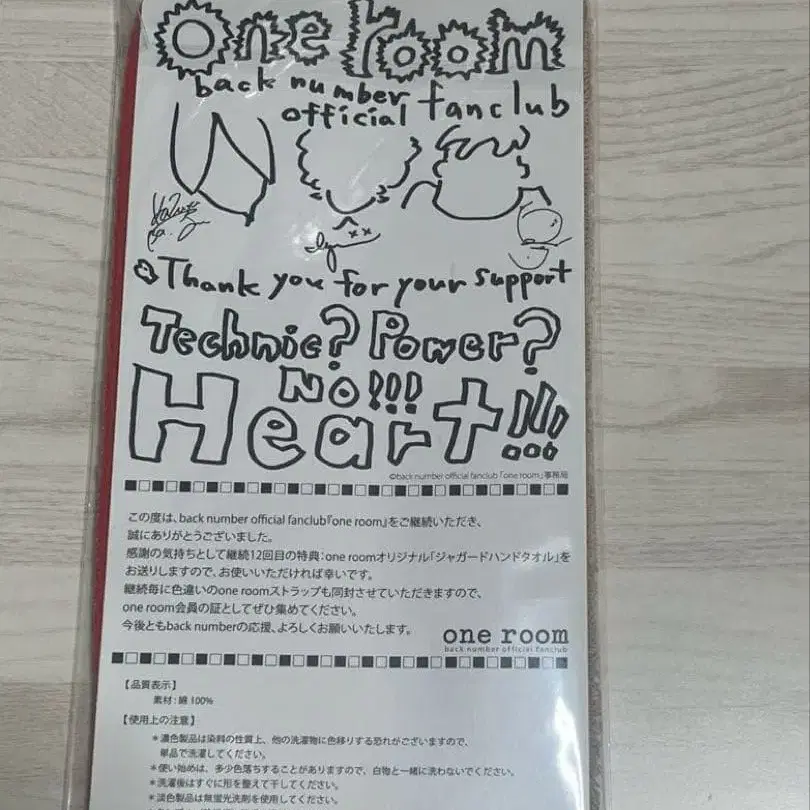 one room
back number
official fanclub
Thank you for your support
Technic? Power?
No!!!
Heart!!!
©back number official fanclub「one room」事務局
この度は、back number official fanclub『one room』をご継続いただき、
誠にありがとうございました。
感謝の気持ちとして継続12回目の特典:one roomオリジナル「ジャガードハンドタオル」を
お送りしますので、お使いいただければ幸いです。
継続毎に色違いのone roomストラップも同封させていただきますので、
one room会員の証としてぜひ集めてください。
今後ともback numberの応援、よろしくお願いいたします。
one room
back number official fanclub
【品質表示】
素材:綿 100%
【使用上の注意】
*濃色製品は染料の性質上、他の洗濯物に色移りする恐れがございますので、
単品で洗濯してください。
*使い始めは、多少色落ちすることがありますので、白物と一緒に洗わないでください。
*洗濯後はすぐに形を整えて干してください。
*淡色製品は無蛍光洗剤を使用してください。